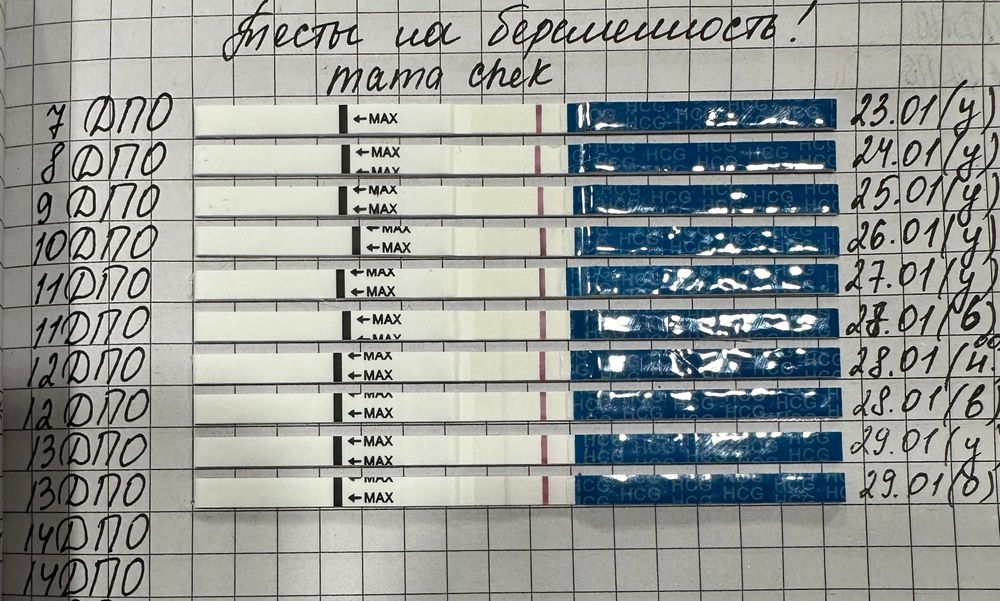 Тесты на беременность!
mama chek
7 ДПО ←MAX HCG HCG HCG HCG 23.01 (у)
8 ДПО ←MAX HCG HCG HCG 24.01 (у)
9 ДПО ←MAX ←MAX HCG HCG HCG 25.01 (у)
10 ДПО ←MAX ←MAX HCG HCG HCG 26.01 (у)
11 ДПО ←MAX ←MAX HCG HCG 27.01 (у)
11 ДПО ←MAX HCG HCG 27.01 (в)
12 ДПО ←MAX ←MAX HCG HCG 28.01
12 ДПО ←MAX ←MAX HCG HCG HCG 28.01 (в)
13 ДПО ←MAX ←MAX HCG HCG 29.01 (у)
13 ДПО ←MAX ←MAX HCG HCG HCG 29.01
14 ДПО
14 ДПО